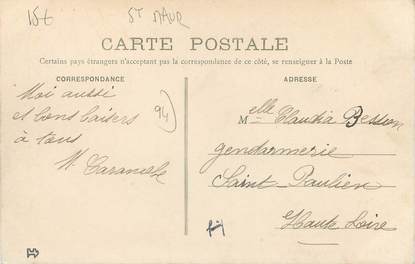 15€
ST MAUR
CARTE POSTALE
Certains pays étrangers n'acceptant pas la correspondance de ce côté, se renseigner à la Poste
CORRESPONDANCE
Moi aussi
et bons baisers
à tous
94
ADRESSE
Melle Claudia Besson
gendarmerie
Saint Paulien
Haute Loire